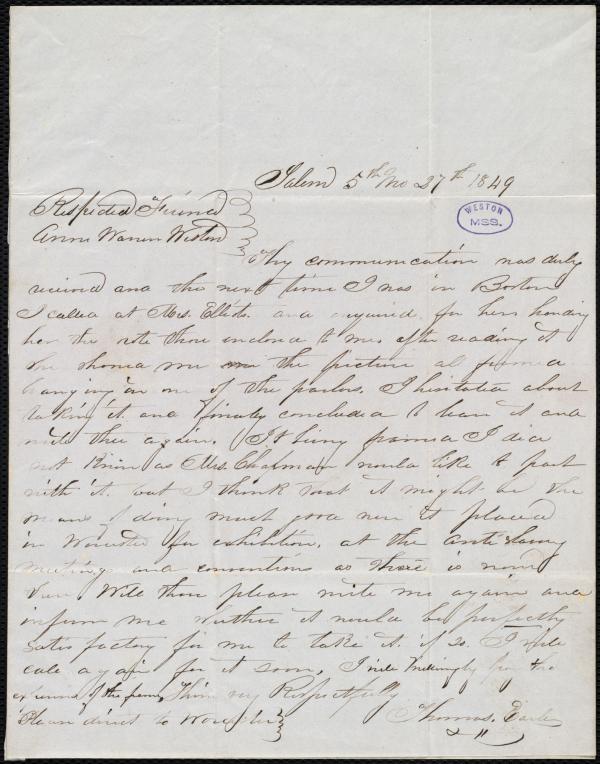 Salem 5th Mo 27th 1849
Respected Friend
Anne Warren Weston
WESTON
MSS.
Thy communication was duly
received and the next time I was in Boston
I called at Mrs. Elliots. and inquired for her, handing
her the note thou inclosed to me, after reading it
she showed me the picture all framed
hanging in one of the parlors. I hesitated about
taking it. and finally concluded to leave it and
write thee again. It being framed I did
not know as Mrs. Chapman would like to part
with it. but I think that it might be the
means of doing much good were it placed
in Worcester for exhibition, at the anti slavery
meetings and conventions as there is none
there. Will thou please write me again and
inform me whether it would be perfectly
satisfactory for me to take it. if so. I will
call again for it soon, I will willingly pay the
expense of the frame, Thine very Respectfully
Please direct to Worcester
Thomas. Earle